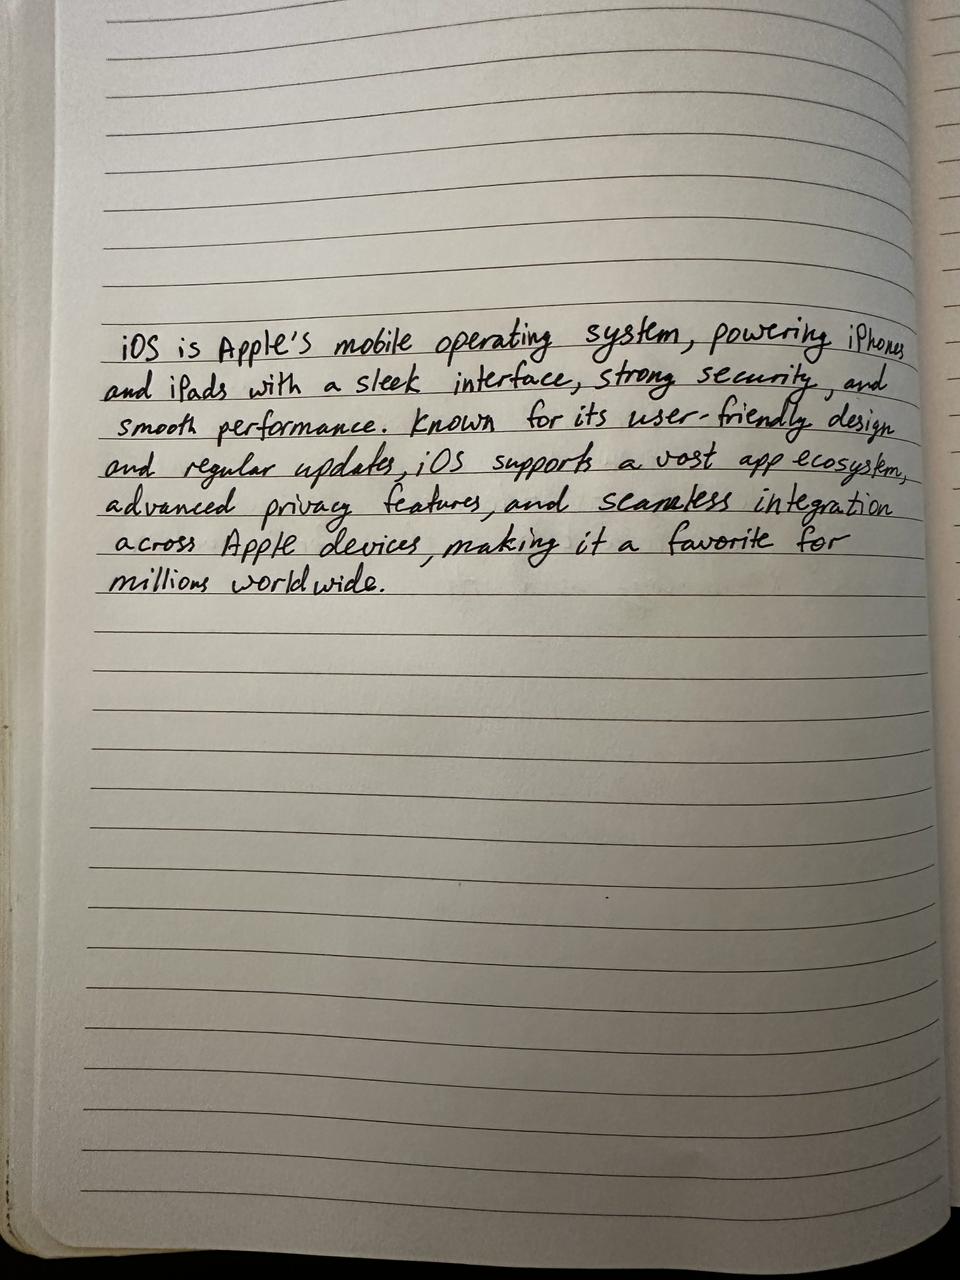 iOS is Apple's mobile operating system, powering iPhones
and iPads with a sleek interface, strong security, and
smooth performance. Known for its user-friendly design
and regular updates, iOS supports a vast app ecosystem,
advanced privacy features, and seamless integration
across Apple devices, making it a favorite for
millions worldwide.